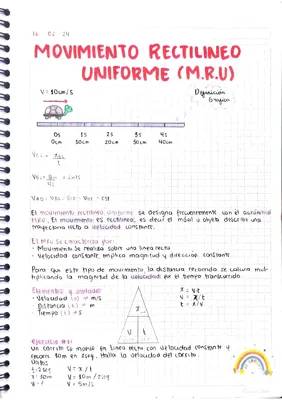 16 02 24
MOVIMIENTO RECTILINEO
UNIFORME (M.R.U)
V = 10cm/s
Definición
Gráfica
0s 1s 2s 3s 4s
0cm 10cm 20cm 30cm 40cm
El movimiento rectilíneo uniforme se designa frecuentemente con el acrónimo
MRU. El movimiento es rectilíneo, es decir el móvil u objeto describe una
trayectoria recta a velocidad constante.
El MRU se caracteriza por:
- Movimiento se realiza sobre una línea recta
- Velocidad constante, implica magnitud y dirección constante
Para este tipo de movimiento la distancia recorrida se calcula mul-
tiplicando la magnitud de la velocidad por el tiempo transcurrido
Elementos y unidades
- Velocidad (v) → m/s
- Distancia (x) → m
- Tiempo (t) → s
x
v t
x = v.t
v = x/t
t = x/v
Ejercicio #1:
Un carrito se mueve en línea recta con velocidad constante y
recorre 10m en 2seg. Halla la velocidad del carrito.
Datos
t=2seg V = x/t
x=10m V = 10m/2seg
V=? V = 5m/s